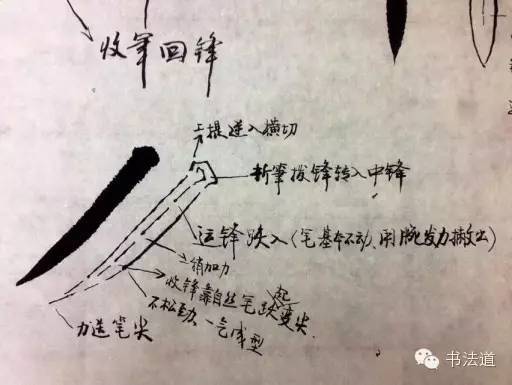 收笔回锋
上提逆入横切
折笔拨锋转入中锋
运锋跌入(笔基本不动、用腕发力撇出)
稍加力
收锋靠自然笔跌起变尖
不松劲、一气成型
力送笔尖
书法道